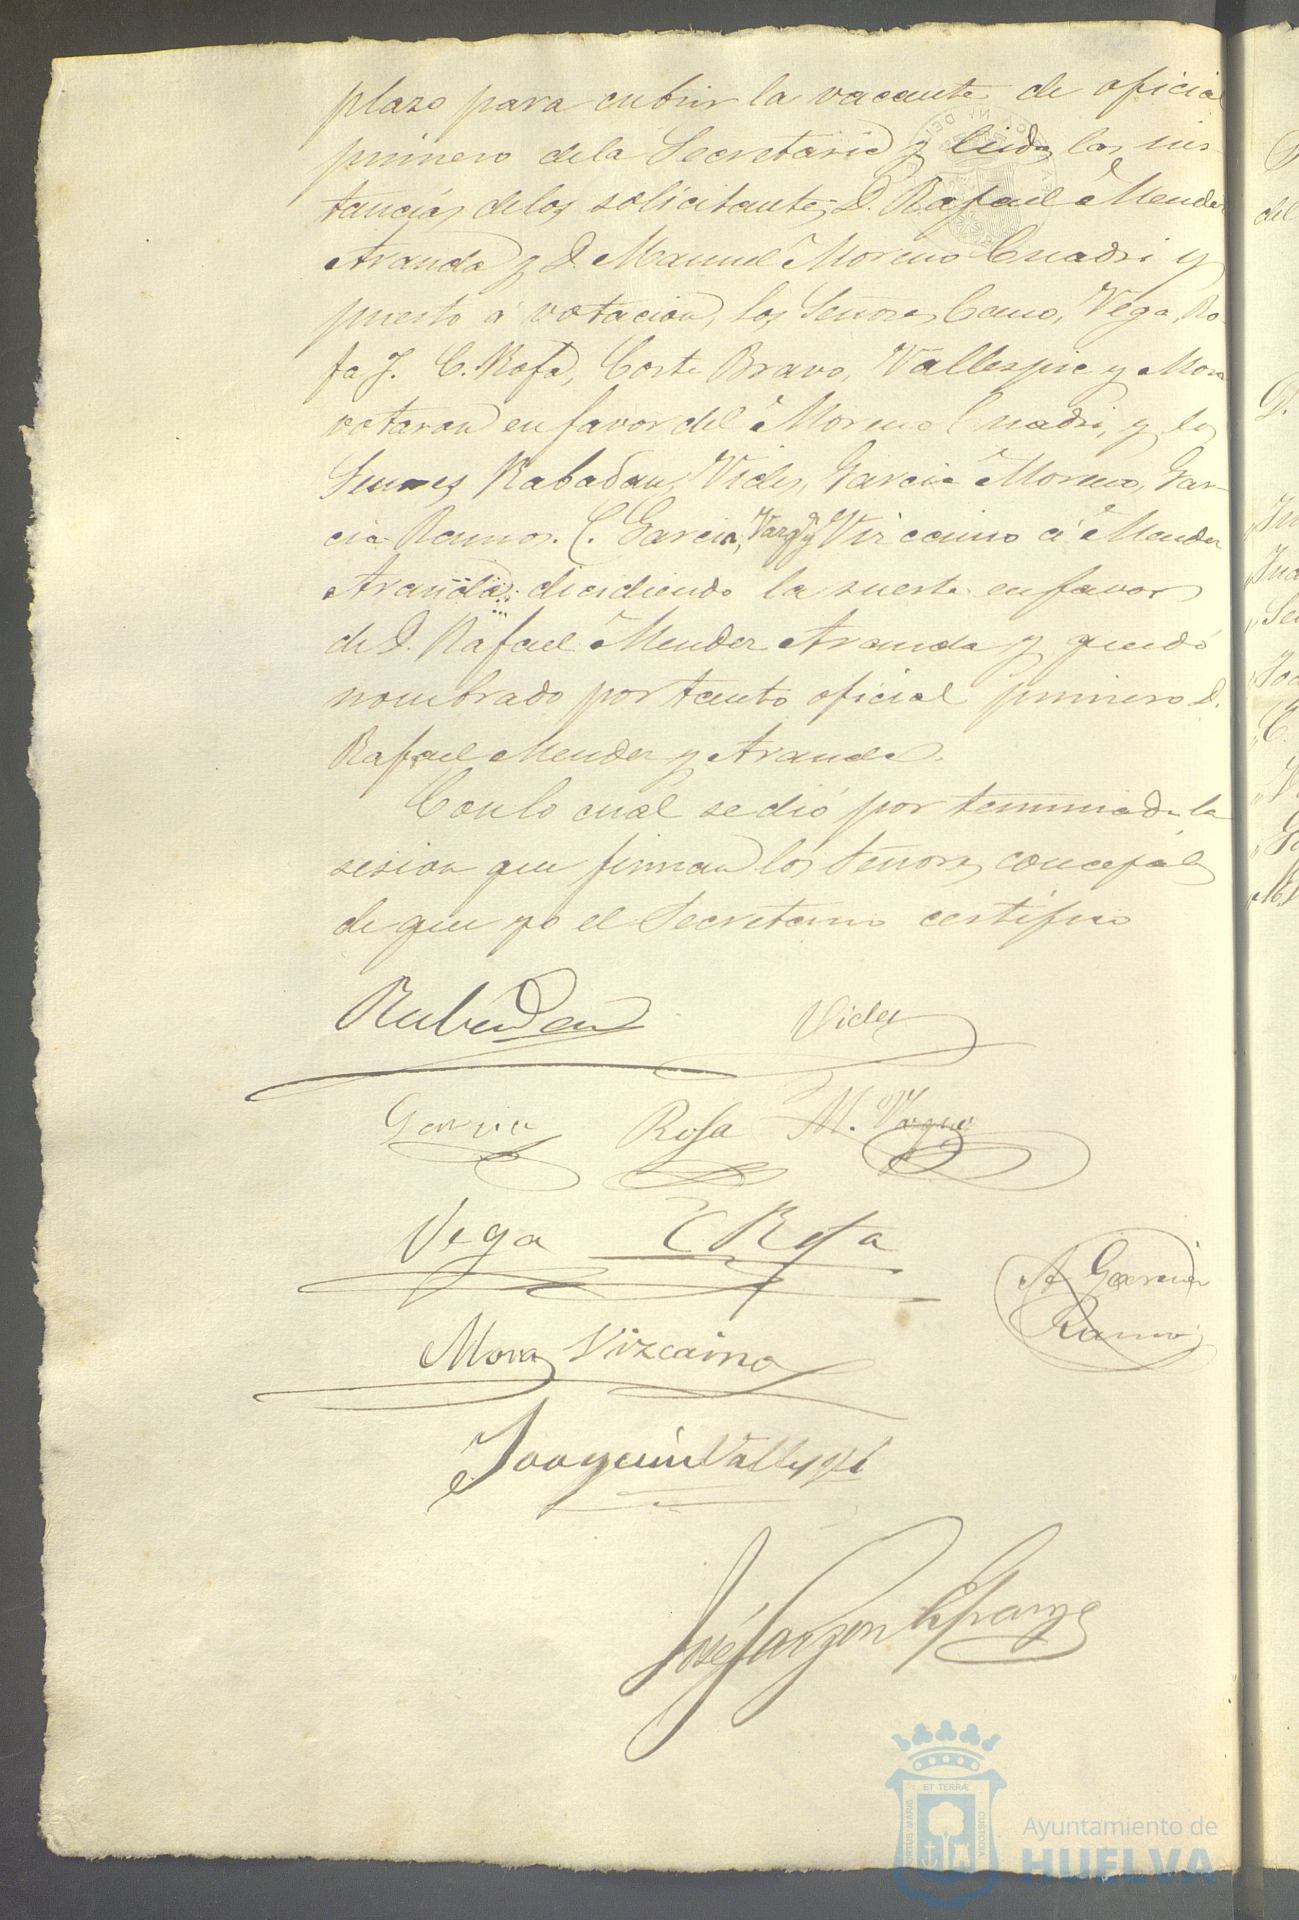 plazo para cubrir la vacante de oficial
primero dela Secretaria y leidas las ins-
tancias delos solicitantes D. Rafael Mendez
Aranda y D. Manuel Moreno Cuadri y
puesto á votacion, los Señores Cano, Vega, Ro-
fa J. C. Rofa, Corte Bravo, Vallespin y Mora
votaron en favor del Moreno Cuadri, y los
Señores Rabadan, Vides, Garcia Moreno, Gar-
cia Ramos. C. Garcia, Vargas y Vizcaino á Mendez
Aranda; decidiendo la suerte en favor
de D. Rafael Mendez Aranda y quedó
nombrado por tanto oficial primero D.
Rafael Mendez y Aranda.
Con lo cual se dió por terminada la
sesion que firman los Señores concejales
de que yo el Secretario certifico
Rabadan Vides
Garcia Rofa M. Vargas
Vega C Rofa
A. Garcia
Ramos
Mora Vizcaino
Joaquin Vallespin
José Garzon
ET TERRÆ
PORTUS MARIS
CUSTODIA
Ayuntamiento de
HUELVA